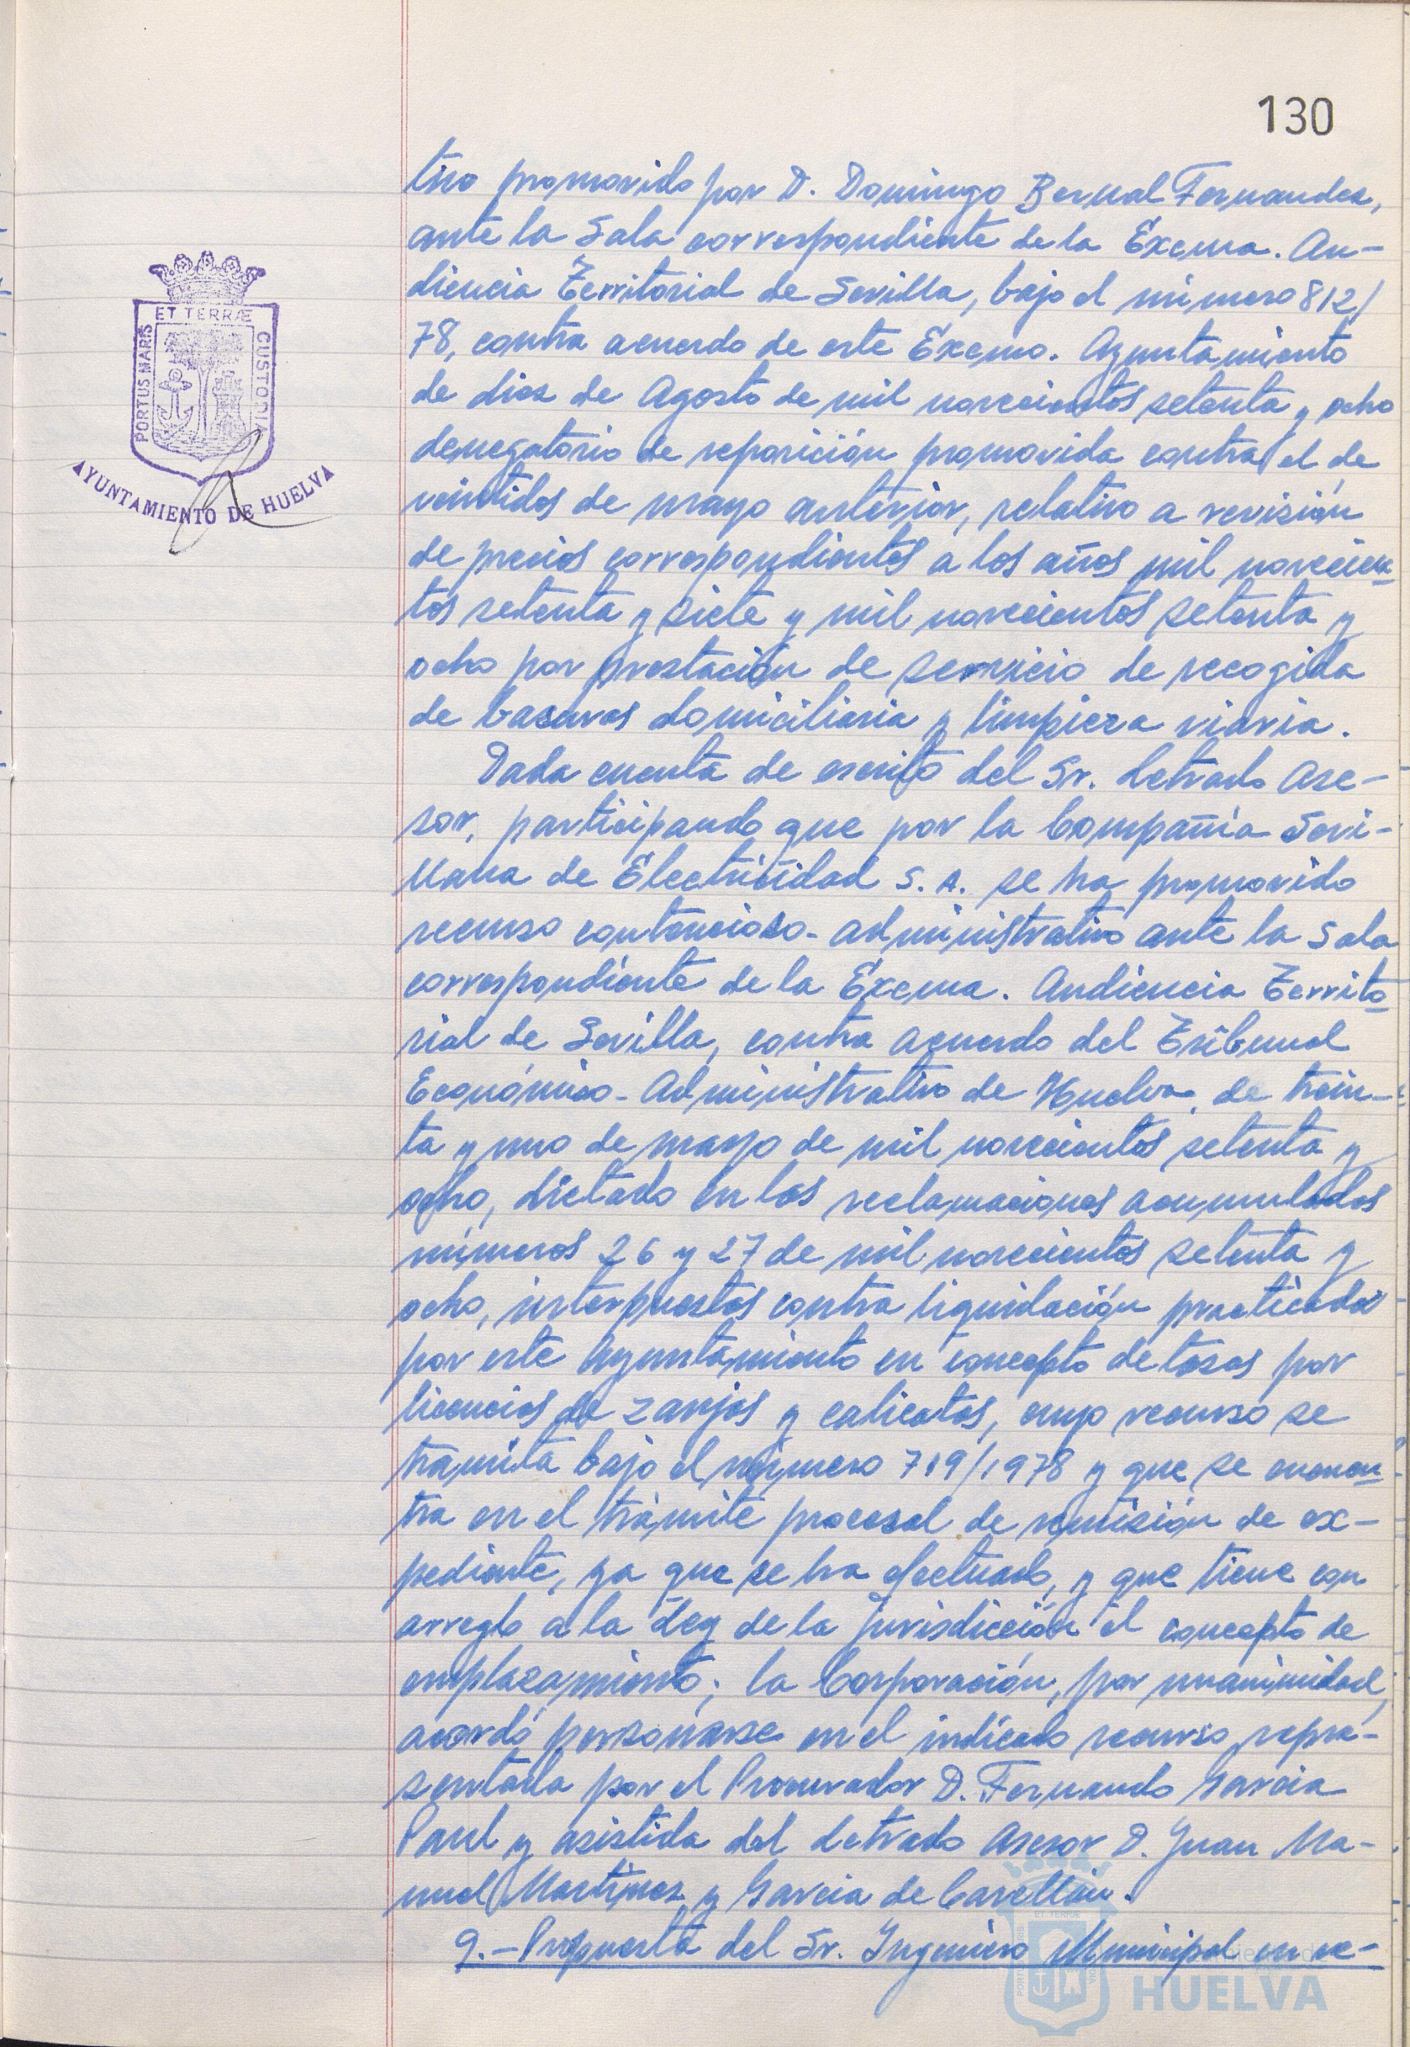 130
tivo promovido por D. Domingo Bernal Fernandez,
ante la Sala correspondiente de la Excma. Au-
diencia Territorial de Sevilla, bajo el número 812/
78, contra acuerdo de este Excmo. Ayuntamiento
de diez de Agosto de mil novecientos setenta y ocho
denegatorio de reposición promovida contra el de
veintidos de mayo anterior, relativo a revisión
de precios correspondientes a los años mil novecien-
tos setenta y siete y mil novecientos setenta y
ocho por prestación de servicio de recogida
de basuras domiciliaria y limpieza viaria.
Dada cuenta de escrito del Sr. Letrado Ase-
sor, participando que por la Compañia Sevi-
llana de Electricidad S.A. se ha promovido
recurso contencioso-administrativo ante la Sala
correspondiente de la Excma. Audiencia Territo-
rial de Sevilla, contra acuerdo del Tribunal
Económico-Administrativo de Huelva, de trein-
ta y uno de mayo de mil novecientos setenta y
ocho, dictado en las reclamaciones acumuladas
números 26 y 27 de mil novecientos setenta y
ocho, interpuestas contra liquidación practicada
por este Ayuntamiento en concepto de tasas por
licencias de zanjas y calicatas, cuyo recurso se
tramita bajo el número 719/1978 y que se encuen-
tra en el trámite procesal de remisión de ex-
pediente, ya que se ha efectuado, y que tiene con
arreglo a la Ley de la jurisdicción el concepto de
emplazamiento; la Corporación, por unanimidad,
acordó personarse en el indicado recurso repre-
sentada por el Procurador D. Fernando Garcia
Paul y asistida del Letrado Asesor D. Juan Ma-
nuel Martinez y Garcia de Cavellin.
9.- Propuesta del Sr. Ingeniero Municipal en re-
PORTUS MARIS
ET TERRÆ
CUSTODIA
AYUNTAMIENTO DE HUELVA
HUELVA